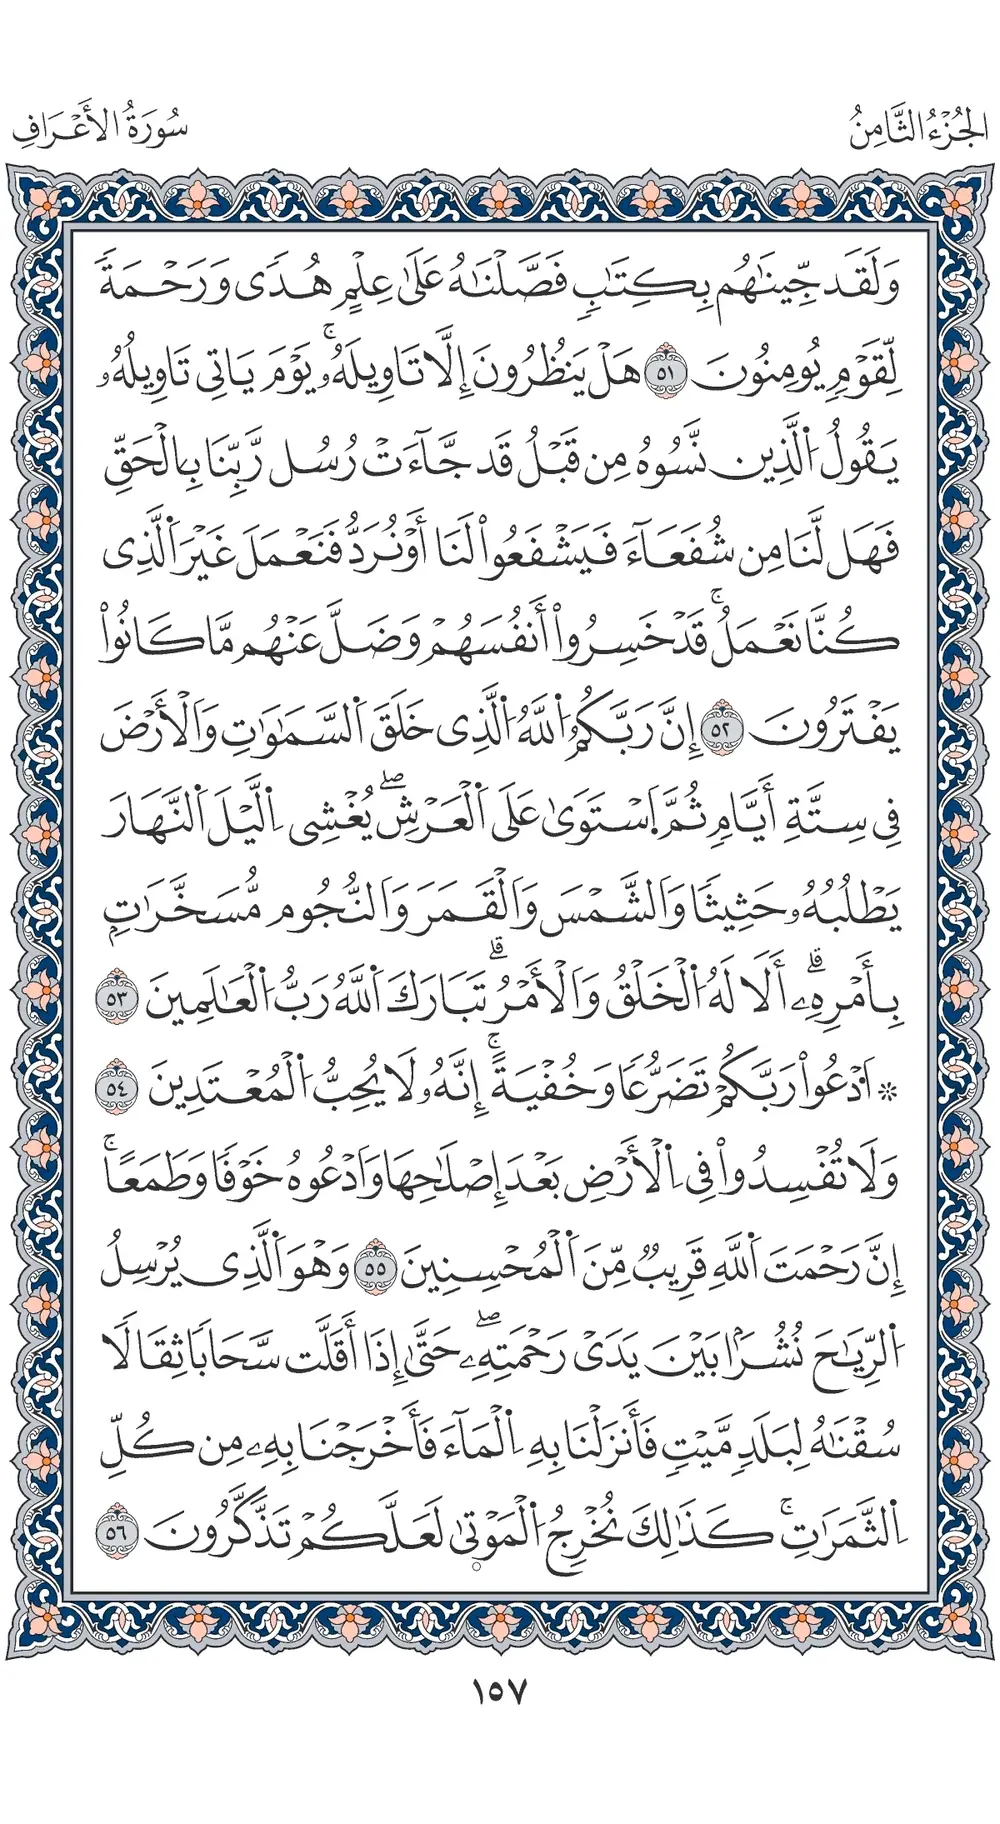 الجُزْءُ الثَّامِنُ
سُورَةُ الأَعْرَافِ
وَلَقَد جِّينَٰهُم بِكِتَٰبٖ فَصَّلْنَٰهُ عَلَىٰ عِلْمٍ هُدٗى وَرَحْمَةٗ
لِّقَوْمٖ يُومِنُونَ ٥١ هَلْ يَنظُرُونَ إِلَّا تَاوِيلَهُۥۚ يَوْمَ يَاتِى تَاوِيلُهُۥ
يَقُولُ اَلَّذِين نَّسُوهُ مِن قَبْلُ قَد جَّآءَتْ رُسُل رَّبِّنَا بِالْحَقِّ
فَهَل لَّنَا مِن شُفَعَآءَ فَيَشْفَعُواْ لَنَا أَوْ نُرَدُّ فَنَعْمَلَ غَيْرَ اَلَّذِى
كُنَّا نَعْمَلُۚ قَدْ خَسِرُواْ أَنفُسَهُمْ وَضَلَّ عَنْهُم مَّا كَانُواْ
يَفْتَرُونَ ٥٢ إِنَّ رَبَّكُمُ اُللَّهُ اُلَّذِى خَلَقَ اَلسَّمَٰوَٰتِ وَالْأَرْضَ
فِى سِتَّةِ أَيَّامٖ ثُمَّ اَسْتَوَىٰ عَلَى اَلْعَرْشِۖ يُغْشِى اِلَّيْلَ اَلنَّهَارَ
يَطْلُبُهُۥ حَثِيثٗا وَالشَّمْسَ وَالْقَمَرَ وَالنُّجُوم مُّسَخَّرَٰتِۭ
بِأَمْرِهِۦۗ أَلَا لَهُ اُلْخَلْقُ وَالْأَمْرُۗ تَبَارَكَ اَللَّهُ رَبُّ اُلْعَٰلَمِينَ ٥٣
۞ اَدْعُواْ رَبَّكُمْ تَضَرُّعٗا وَخُفْيَةًۚ إِنَّهُۥ لَا يُحِبُّ اُلْمُعْتَدِينَ ٥٤
وَلَا تُفْسِدُواْ فِى اِلْأَرْضِ بَعْدَ إِصْلَٰحِهَا وَادْعُوهُ خَوْفٗا وَطَمَعًاۚ
إِنَّ رَحْمَتَ اَللَّهِ قَرِيبٞ مِّنَ اَلْمُحْسِنِينَ ٥٥ وَهْوَ اَلَّذِى يُرْسِلُ
اُلرِّيَٰحَ نُشُرَۢا بَيْنَ يَدَىْ رَحْمَتِهِۦۖ حَتَّىٰ إِذَا أَقَلَّت سَّحَابٗا ثِقَالٗا
سُقْنَٰهُ لِبَلَدٖ مَّيْتٖ فَأَنزَلْنَا بِهِ اِلْمَآءَ فَأَخْرَجْنَا بِهِۦ مِن كُلِّ
اِلثَّمَرَٰتِۚ كَذَٰلِكَ نُخْرِجُ اُلْمَوْتٜىٰ لَعَلَّكُمْ تَذَّكَّرُونَ ٥٦
١٥٧